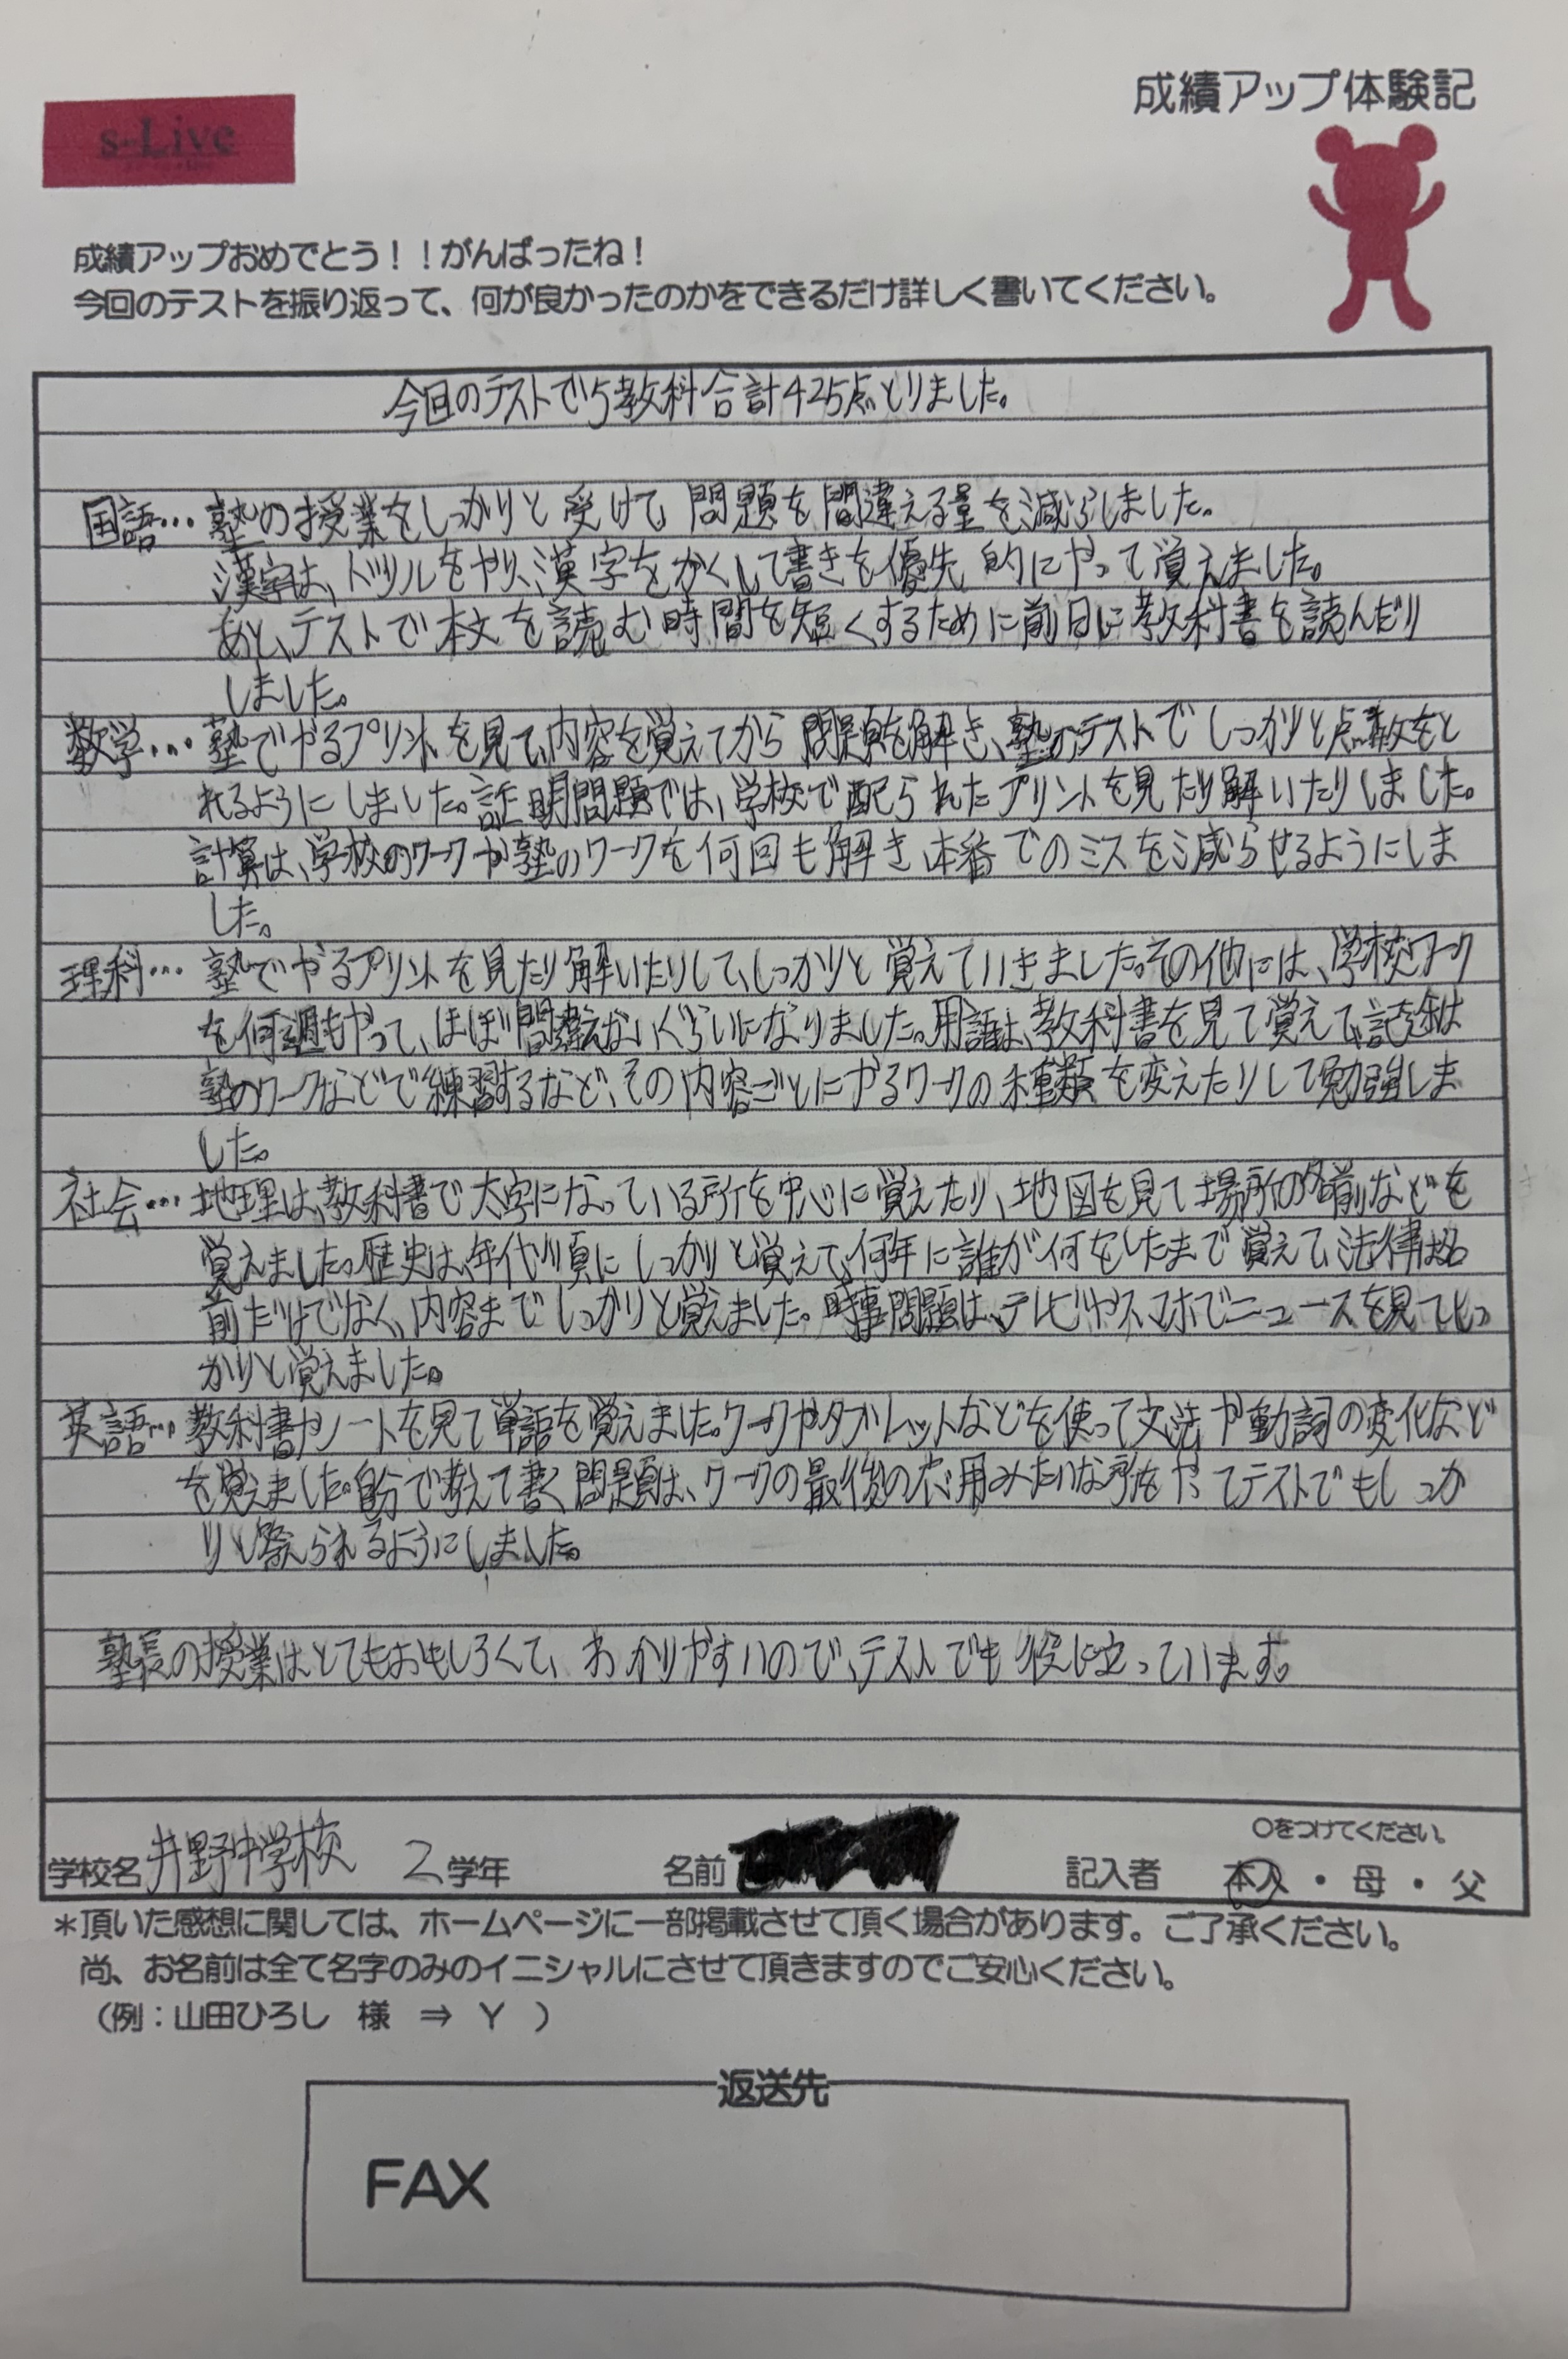 成績アップ体験記
s-Live
成績アップおめでとう！！がんばったね！
今回のテストを振り返って、何が良かったのかをできるだけ詳しく書いてください。
今回のテストで5教科合計425点とりました。
国語…塾の授業をしっかりと受けて、問題を間違える量を減らしました。
漢字は、ドリルをやり、漢字をかくして書きを優先的にやって覚えました。
あと、テストで本文を読む時間を短くするために前日に教科書を読んだり
しました。
数学…塾でやるプリントを見て、内容を覚えてから問題を解き、塾のテストでしっかりと点数をと
れるようにしました。証明問題では、学校で配られたプリントを見たり解いたりしました。
計算は、学校のワークや塾のワークを何回も解き、本番でのミスを減らせるようにしま
した。
理科…塾でやるプリントを見たり解いたりして、しっかりと覚えていきました。その他には、学校ワーク
を何週もやって、ほぼ間違えないぐらいになりました。用語は、教科書を見て覚えて、記述は
塾のワークなどで練習するなど、その内容ごとにやるワークの種類を変えたりして勉強しま
した。
社会…地理は、教科書で太字になっている所を中心に覚えたり、地図を見て場所の名前などを
覚えました。歴史は、年代順にしっかりと覚えて、何年に誰が何をしたまで覚えて、法律は名
前だけでなく、内容までしっかりと覚えました。時事問題は、テレビやスマホでニュースを見てしっ
かりと覚えました。
英語…教科書やノートを見て単語を覚えました。ワークやタブレットなどを使って文法や動詞の変化など
を覚えました。自分で考えて書く問題は、ワークの最後の応用みたいな所をやってテストでもしっか
りと答えられるようにしました。
塾長の授業は、とてもおもしろくて、わかりやすいので、テストでも役に立っています。
〇をつけてください。
学校名 井野中学校 2学年 名前 記入者 本人・母・父
＊頂いた感想に関しては、ホームページに一部掲載させて頂く場合があります。ご了承ください。
尚、お名前は全て名字のみのイニシャルにさせて頂きますのでご安心ください。
（例：山田ひろし 様 ⇒ Y ）
返送先
FAX